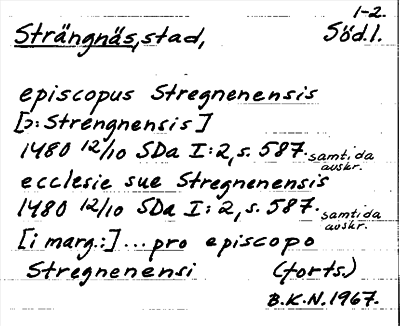 1-2.
Strängnäs, stad, Södl.
episcopus Stregnenensis
[ɔ: Strengnensis]
1480 12/10 SDa I:2, s. 587. samtida avskr.
ecclesie sue Stregnenensis
1480 12/10 SDa I:2, s. 587. samtida avskr.
[i marg.:] ... pro episcopo
Stregnenensi (forts.)
B.K.N. 1967.